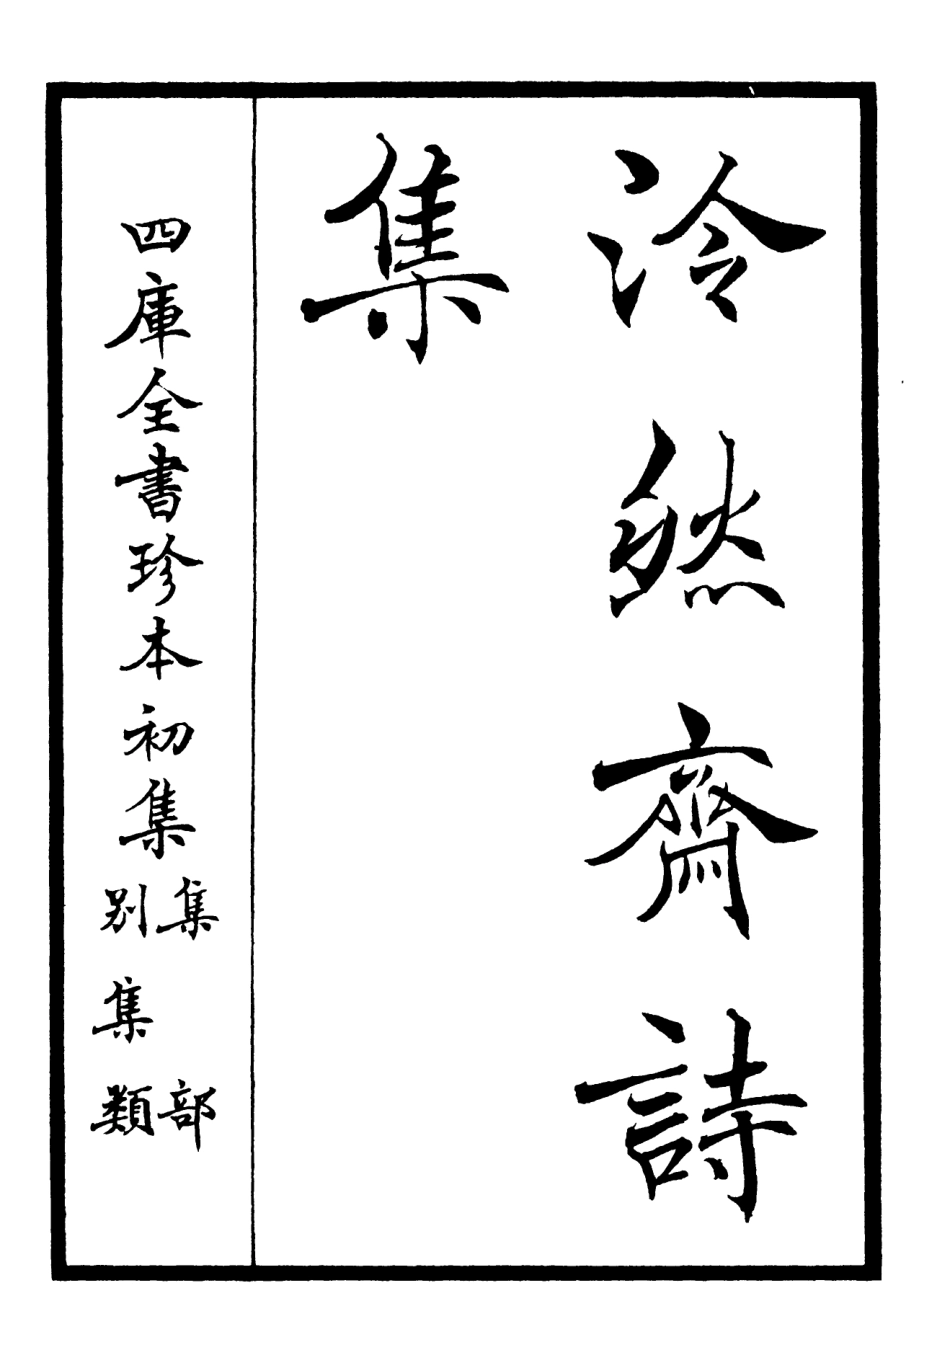 泠然齋詩
集
四庫全書珍本初集
集部
别集類